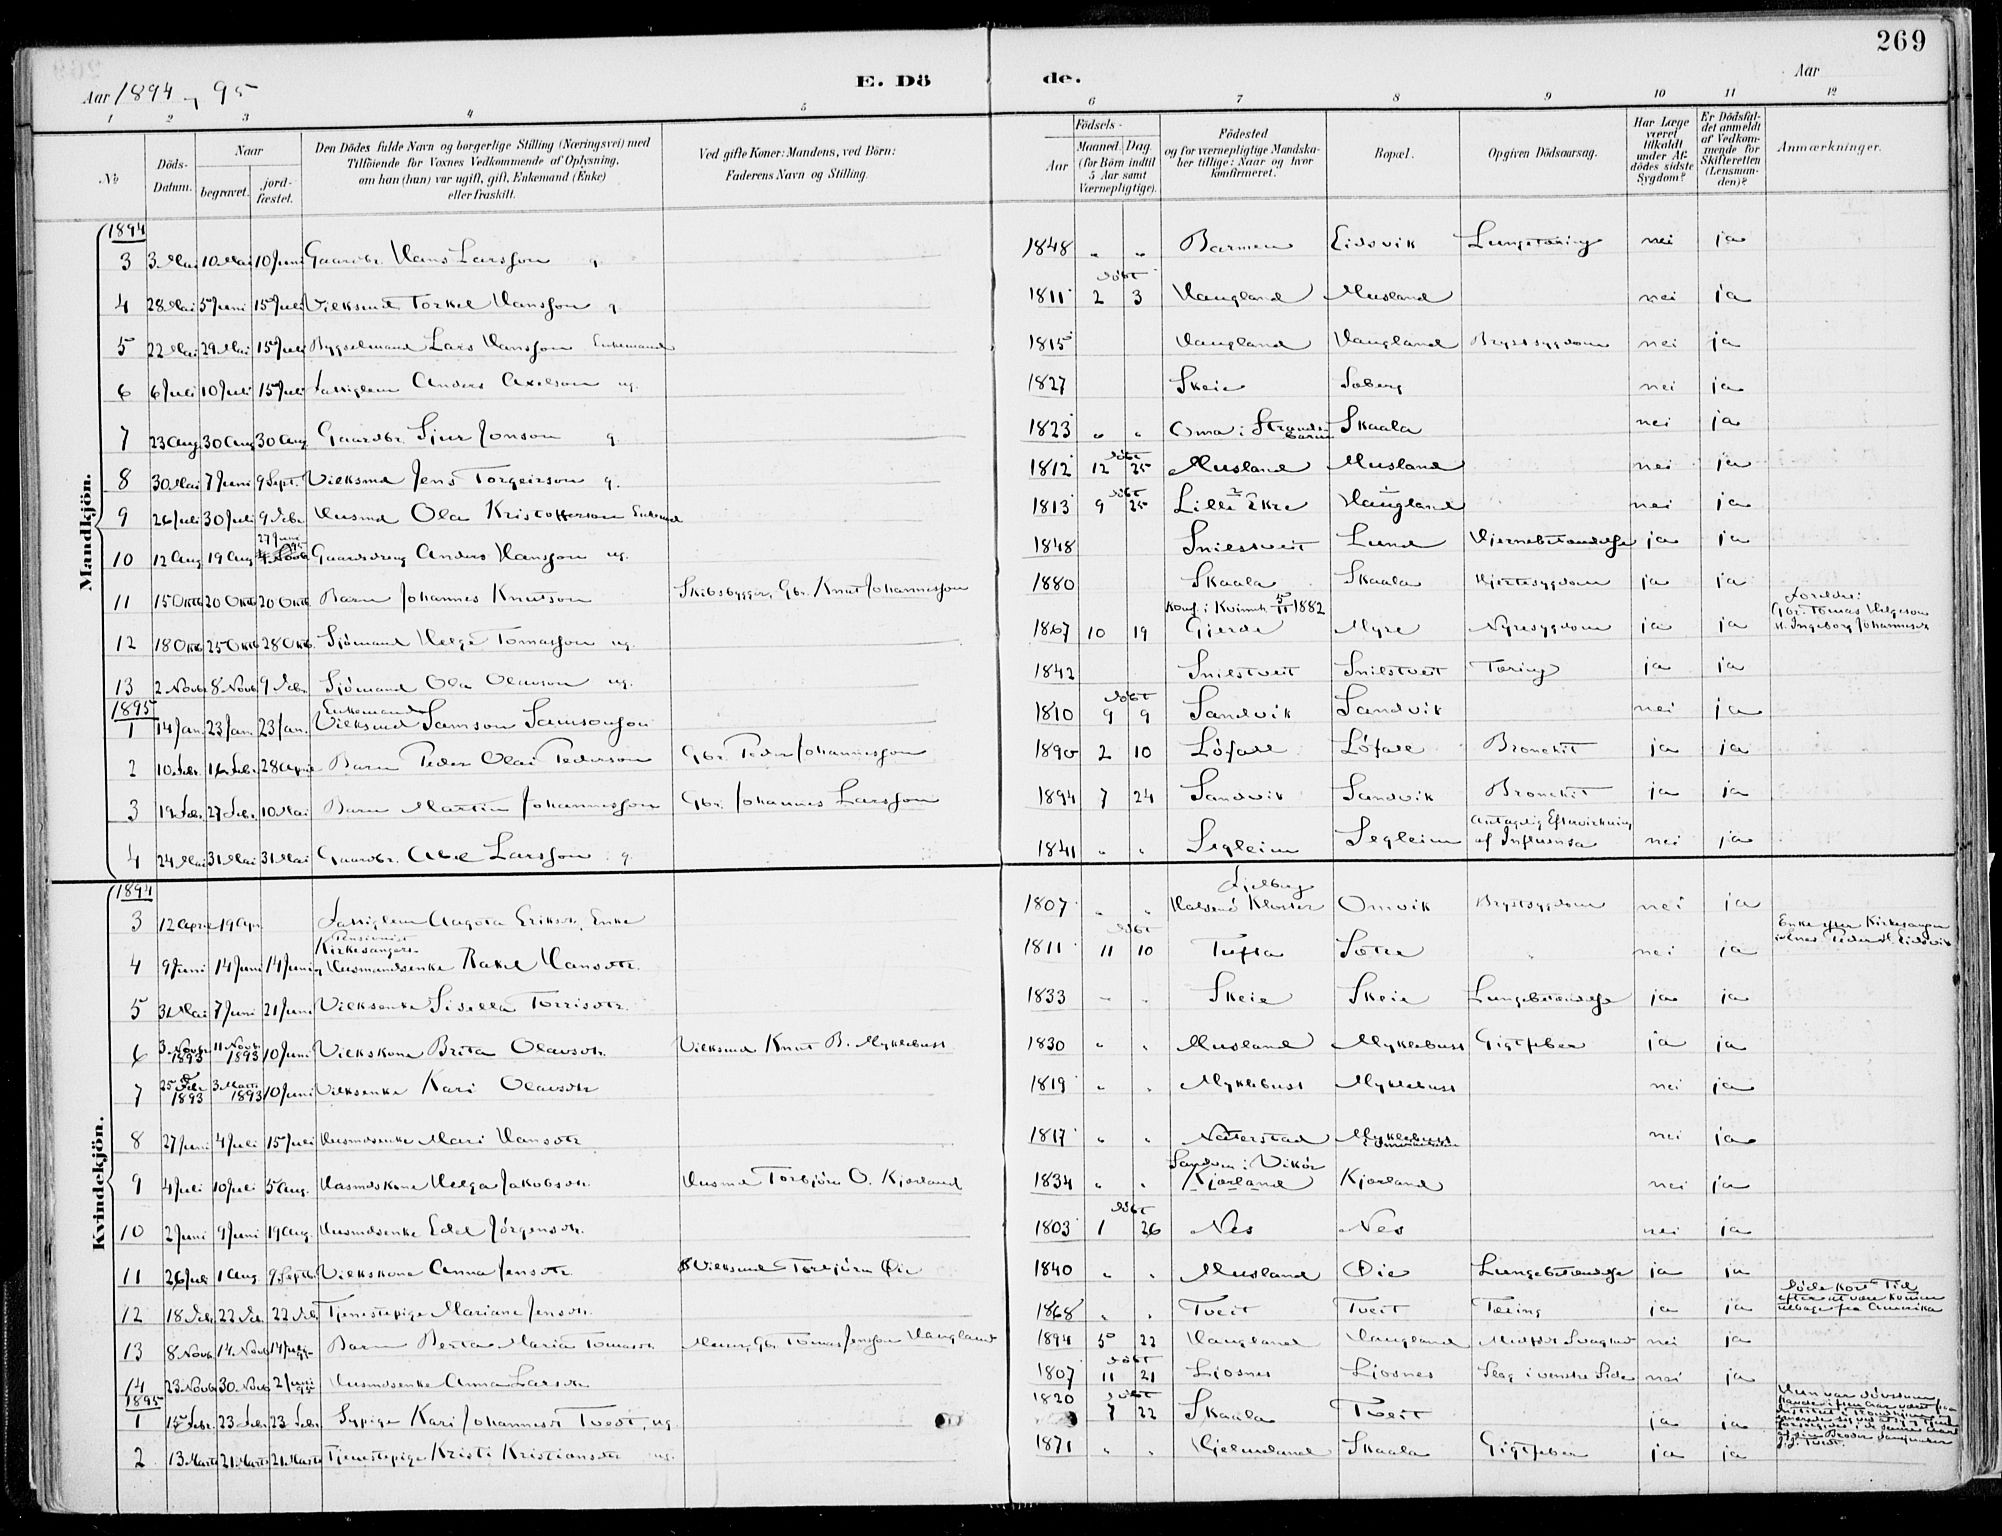 269
Aar 1894 og 95 E. Dö de. Aar
1 2 3 4 5 6 7 8 9 10 11 12
No
Döds-Datum.
Naar
begravet.
jordfæstet.
Den Dödes fulde Navn og borgerlige Stilling (Næringsvei) med
Tilföiende for Voxnes Vedkommende af Oplysning,
om han (hun) var ugift, gift, Enkemand (Enke)
eller fraskilt.
Ved gifte Koner: Mandens, ved Börn:
Faderens Navn og Stilling.
Födsels-
Aar
Maaned. Dag.
(for Börn indtil
5 Aar samt
Værnepligtige).
Födested
og for værnepligtige Mandska-
ber tillige: Naar og hvor
konfirmeret.
Bopæl.
Opgiven Dödsaarsag.
Har Læge
været
tilkaldt
under Af-
dödes sidste
Sygdom?
Er Dödsfal-
det anmeldt
af Vedkom-
mende for
Skifteretten
(Lensman-
den)?
Anmærkninger.
Mandkjön.
1894
3 3 Mai 10 Mai 10 Juni Gaardbr. Hans Larsson g. 1848 " " Barmen Eidsvik Lungetæring nei ja
4 28 Mai 5 Juni 15 Juli Vilksmd Torkel Hansson g. 1811 döbt 2 3 Haugland Musland nei ja
5 22 Mai 29 Mai 15 Juli Bygselmand Lars Hansson Enkemand 1815 Haugland Haugland Brystsygdom nei ja
6 6 Juli 10 Juli 15 Juli Fattiglem Anders Axelson ug. 1827 Skeie Soberg nei ja
7 23 Aug 30 Aug 30 Aug Gaardbr. Sjur Jonson g. 1823 " " Oma i Strandebarm Skaala nei ja
8 30 Mai 7 Juni 9 Sept. Vilksmd Jens Torgeirson g. 1812 döbt 12 25 Musland Musland nei ja
9 26 Juli 30 Juli 9 Sebr Husmd Ola Kristofferson Enkemd 1813 döbt 9 25 Lille Ekre Haugland nei ja
10 12 Aug 19 Aug 27 Juni 95 Gaardsdreng Anders Hansson ug. 1848 Snilstveit Lund Hjernebetændelse ja ja
11 15 Oktb 20 Oktb 20 Oktb Barn Johannes Knutson Skibsbygger, Gbr. Knut Johannesson 1880 Skaala Skaala Hjertesygdom ja ja
12 18 Oktb 25 Oktb 28 Oktb. Sjömand Helge Tomasson ug. 1867 10 19 Konf. i Kvinnh. 5/11 1882 Gjerde Myre Nyresygdom ja ja Foreldre: Gbr. Tomas Helgeson H. Ingeborg Johannesdr
13 2 Novbr 8 Novb 9 Debr Sjömand Ola Olavson ug. 1842 Snilstveit Snilstveit Tæring ja ja
1895
1 14 Jan. 23 Jan. 23 Jan. Enkemand Vilksmd Samson Samsonson 1810 döbt 9 9 Sandvik Sandvik nei ja
2 10 Febr. 16 Febr. 28 April Barn Peder Olai Pederson Gbr. Peder Johannesson 1890 2 10 Löfall Löfall Bronchit ja ja
3 19 Febr. 27 Febr. 10 Mai Barn Martin Johannesson Gbr. Johannes Larsson 1894 7 24 Sandvik Sandvik Bronchit ja ja
4 24 Mai 31 Mai 31 Mai Gaardbr. Abel Larsson g. 1841 " " Segleim Segleim Antagelig Eftervirkning af Influensa nei ja
Kvindekjön.
1894
3 12 April 19 Apr. Fattiglem Aagota Eriksdr, Enke 1807 " " Fjelberg Halsnö Kloster Omvik Brystsygdom nei ja
4 9 Juni 14 Juni 14 Juni Pensionist Kirkesangers og Husmandsenke Rakel Hansdtr. 1811 döbt 11 10 Tufta Sætre nei ja Enke efter Kirkesanger Peder H. Eidsvik
5 31 Mai 7 Juni 21 Juni Vilksenke Sisella Torrisdtr. 1833 " " Skeie Skeie Lungebetændelse ja ja
6 3 Novbr 1893 11 Novb. 1893 10 Juni Vilkskone Brita Olavsdtr. Vilksmd Knut B. Myklebust 1830 " " Musland Myklebust Gigtfeber ja ja
7 25 Febr 1893 3 Marts 1893 10 Juni Vilksenke Kari Olavsdtr 1819 " " Myklebust Myklebust nei ja
8 27 Juni 4 Juli 15 Juli Husmdsenke Mari Hansdtr 1817 " " Naterstad Myklebust nei ja
9 4 Juli 10 Juli 5 Aug. Husmdskone Helga Jakobsdr. Husmd Torbjörn O. Kjærland 1834 " " Sandven i Vikör Kjærland Kjærland nei ja
10 2 Juni 9 Juni 19 Aug. Husmdsenke Edel Jörgensdtr. 1803 döbt 1 26 Nes Nes nei ja
11 26 Juli 1 Aug. 9 Septb. Vilkskone Anna Jensdtr. Vilksmd Torbjörn Øie 1840 " " Musland Øie Lungebetændelse ja ja
12 18 Debr. 22 De. 22 Deb Tjenestepige Mariane Jensdtr. 1868 " " Tveit Tveit Tæring ja ja Döde kort Tid efter at være kommen tilbage fra Amerika
13 8 Novb. 14 Novb 14 Barn Berta Maria Tomasdtr Gbr. Tomas Jensson Haugland 1894 5 22 Haugland Haugland Medfödt Svaghed nei ja
14 23 Novbr 30 Novb 2 Juni 95 Husmdsenke Anna Larsdtr 1807 döbt 11 21 Ljosnes Ljosnes Slag i venstre Side nei ja
1895
1 15 Febr. 23 Febr 23 Febr. Sypige Kari Johannesdr Tvedt, ug. 1820 döbt 7 22 Skaala Tveit ja ja Hun var dövstum
2 13 Marts 21 Marts 21 Marts Tjenestepige Kristi Kristiansdtr ug. 1871 " " Hjelmeland Skaala Gigtfeber ja ja